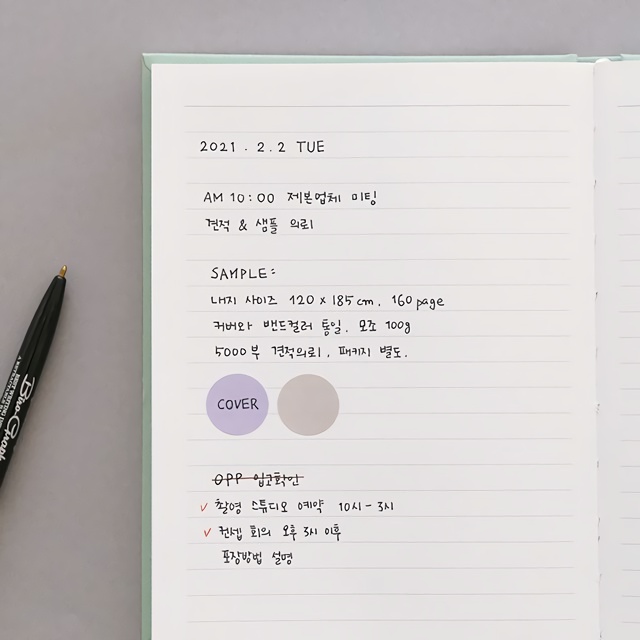 2021 . 2. 2 TUE
AM 10:00 제본업체 미팅
견적 & 샘플 의뢰
SAMPLE:
내지 사이즈 120 x 185 cm, 160 page
커버와 밴드컬러 통일, 모조 100g
5000 부 견적의뢰, 패키지 별도.
COVER
OPP 입고확인
✓ 촬영 스튜디오 예약 10시 - 3시
✓ 컨셉 회의 오후 3시 이후
포장방법 설명